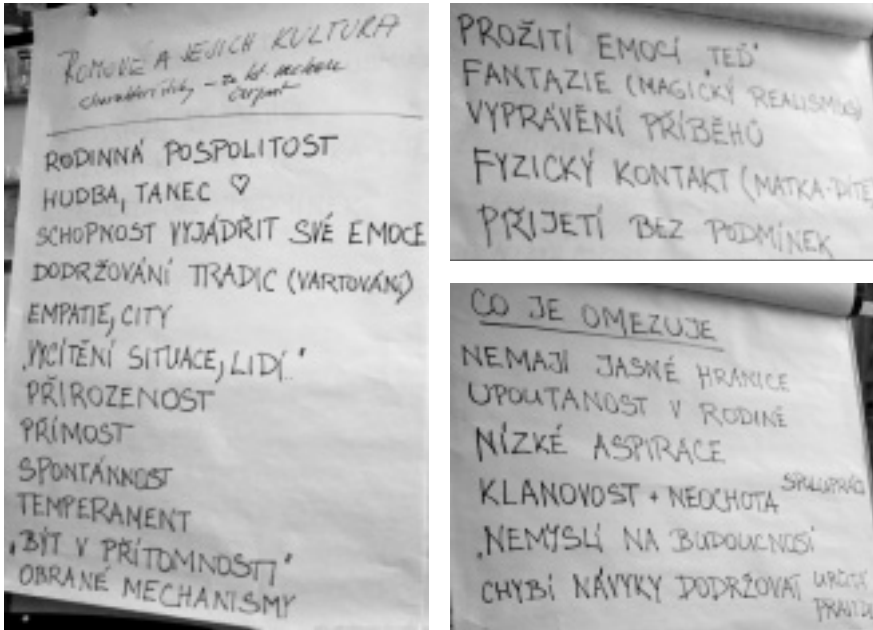 ROMOVÉ A JEJICH KULTURA
charakteristiky – ze kt. mohou
čerpat
RODINNÁ POSPOLITOST
HUDBA, TANEC ♡
SCHOPNOST VYJÁDŘIT SVÉ EMOCE
DODRŽOVÁNÍ TRADIC (VARTOVÁNÍ)
EMPATIE, CITY
„VYCÍTĚNÍ SITUACE, LIDÍ.."
PŘIROZENOST
PŘÍMOST
SPONTÁNNOST
TEMPERAMENT
„BÝT V PŘÍTOMNOSTI"
OBRANÉ MECHANISMY
PROŽITÍ EMOCÍ „TEĎ"
FANTAZIE (MAGICKÝ REALISMUS)
VYPRÁVĚNÍ PŘÍBĚHŮ
FYZICKÝ KONTAKT (MATKA-DÍTĚ
PŘIJETÍ BEZ PODMÍNEK
CO JE OMEZUJE
NEMAJÍ JASNÉ HRANICE
UPOUTANOST V RODINĚ
NÍZKÉ ASPIRACE
KLANOVOST + NEOCHOTA SPOLUPRÁCE
„NEMYSLÍ NA BUDOUCNOST
CHYBÍ NÁVYKY DODRŽOVAT URČITÁ
PRAVIDL